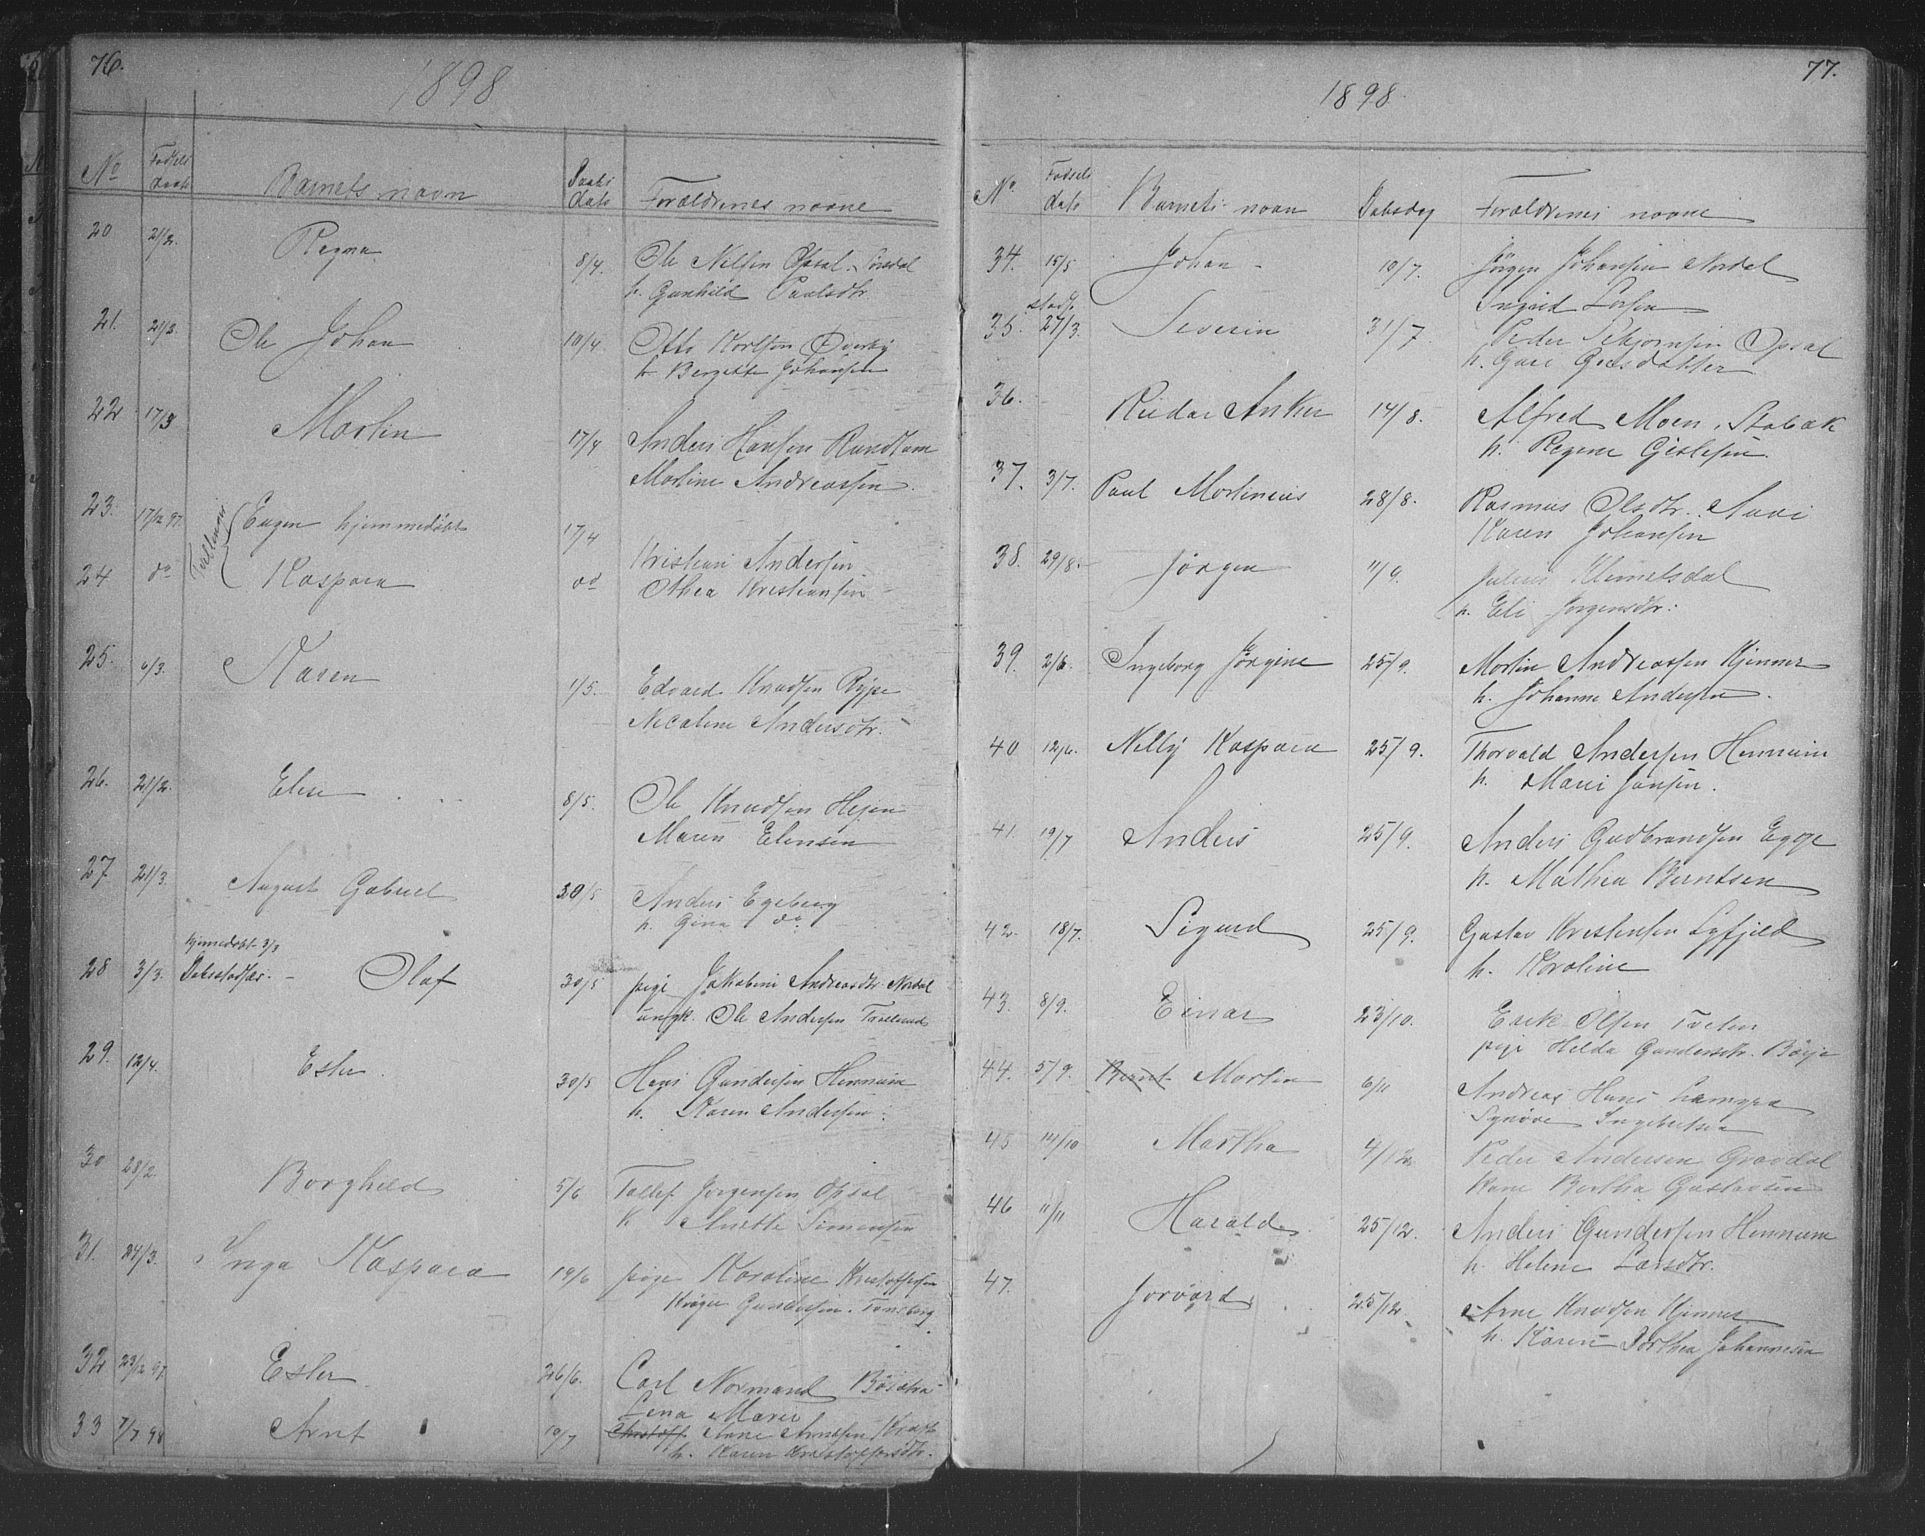 76.
1898
No Fødsels dato Barnets navn Daabs dato Forældrenes navne
20 21/2. Ragna 8/4. Ole Nilsen Opsal
h. Gunhild Paulsdtr.
21. 21/3. Ole Johan 10/4. Otto Karlsen Overby
h. Bergette Johansen
22 17/3 Martin 17/4 Anders Hansen Rundtom
Martine Andreassen.
23. 17/12 97. Tvillinger Eugen hjemmedøbt 17/4 Kristian Andersen
24 do Kaspara do Othea Kristiansen
25. 6/3. Karen 1/5. Edvard Knudsen Rype
Nicoline Andersdtr.
26. 21/2. Elise 8/5. Ole Knudsen Hejen
Maren Elensen
27 21/3. August Gabriel 30/5 Anders Egeberg
h. Gina do
hjemmedøbt 3/3
28 3/3. Dabsstadfæs. - Olaf 30/5 pige Jakobine Andreasdtr. Nordal
ungk. Ole Andersen
29. 12/4. Ester. 30/5 Hans Gundersen Hennum
h. Karen Andersen.
30 28/2. Borghild 5/6 Tollef Jørgensen Opsal
h. Anette Simensen
31. 24/3. Inga Kaspara 19/6 pige Karoline Kristoffersen
Gundersen. Tønsberg.
32 23/12 97. Ester 26/6. Carl Normand
Lena Marie
33 7/7 98 Arnt 10/7 Arne Arnesen
h. Karen Kristoffersdtr.
77.
1898.
No. Fødsels dato Barnets navn Dabsdag Forældrenes navne
34. 15/5 Johan - 10/7. Jørgen Johansen Nordal
Ingrid Larsen
stadf.
35. 27/3. Severin 31/7. Peder Opsal
h. Guri
36. Reidar Anker 14/8. Alfred Moen, Stabæk
h. Regine Gislesen.
37. 3/7. Paul Martinius 28/8. Rasmus Olsdtr.
Karen Johansen
38. 29/8. Jørgen 11/9. Julius Klemetsdal
h. Eli Jørgensdtr.
39. 2/6. Ingeborg Jørgine 25/9. Martin Andreassen Kjenner
h. Johanne Andersen.
40 12/6. Nelly Kaspara 25/9. Thorvald Andersen Hennum
h. Marie Jansen.
41. 19/7 Anders 25/9. Anders Gudbrandsen Egge
h. Mathea Berntsen
42. 18/7. Sigurd 25/9. Gustav Kristensen Lyfjeld
h. Karoline
43. 8/9. Einar 23/10. Erik Olsen Tveten
pige Helda Gundersdtr.
44. 5/9. Bernt Martin 6/11 Andreas Hans
Synøve Ingebretsen
45 14/10 Martha 4/12 Peder Andersen Gravdal
Kone Bertha Gustavsen
46 11/11 Harald 25/12. Anders Gundersen Hennum
h. Helene Larsdtr.
47. Jorvard 25/12. Arne Knudsen Kjenner
h. Karen Dorthea Johannesen